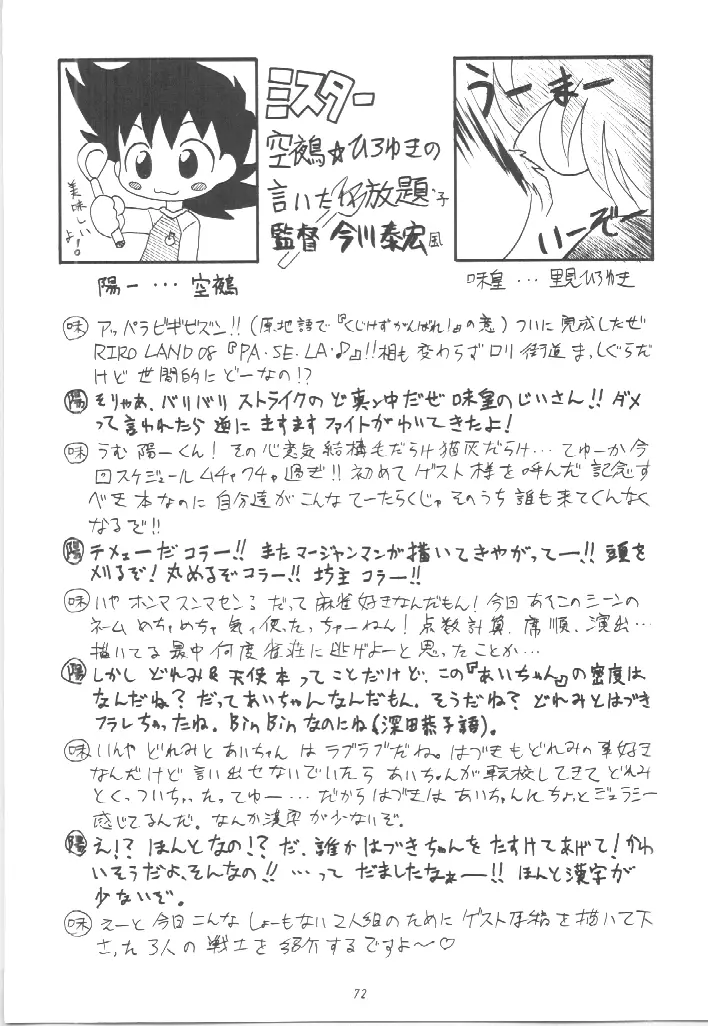 美味しいよ!
ミスター
空鵺☆ひろゆきの
言いたい放題
監督 今川泰宏 風
うーまー
いーぞー
陽一…空鵺
味皇…里見ひろゆき
味 アッパラビギビズン!!(原地語で『くじけずがんばれ!』の意)ついに完成したぜ
RIRO LAND 08『PA・SE・LA・♪』!!相も変わらずロリ街道まっしぐらだ
けど世間的にどーなの!?
陽 そりゃあ、バリバリストライクのど真ン中だぜ味皇のじいさん!!ダメ
って言われたら逆にますますファイトがわいてきたよ!
味 うむ陽一くん!その心意気結構毛だらけ猫灰だらけ…てゆーか今
回スケジュールムチャクチャ過ぎ!!初めてゲスト様を呼んだ記念す
べき本なのに自分達がこんなてーたらくじゃそのうち誰も来てくんなく
なるぞ!!
陽 テメェーだコラー!!またマージャンマンが描いてきやがってー!!頭を
刈るぞ!丸めるぞコラー!!坊主コラー!!
味 いやホンマスンマセンだって麻雀好きなんだもん!今回あそこのシーンの
ネームめちゃめちゃ気ィ使たっちゃーねん!点数計算、席順、演出…
描いてる最中何度雀荘に逃げよーと思ったことか…
陽 しかしどれみ&天使本ってことだけど、この『あいちゃん』の密度は
なんだね?だってあいちゃんなんだもん。そうだね?どれみとはづき
フラレちゃったね。Bin Binなのにね(深田恭子語)。
味 いんやどれみとあいちゃんはラブラブだね。はづきもどれみの事好き
なんだけど言い出せないでいたらあいちゃんが転校してきてどれみ
とくっついちゃったってゆー…だからはづきはあいちゃんにちょっとジェラシー
感じてるんだ。なんか漢字が少ないぞ。
陽 え!?ほんとなの!?だ、誰かはづきちゃんをたすけてあげて!かわ
いそうだよ、そんなの!!…ってだましたなぁー!!ほんと漢字が
少ないぞ。
味 えーと今回こんなしょーもない2人組のためにゲスト原稿を描いて下
さった3人の戦士を紹介するですよ〜♡
72